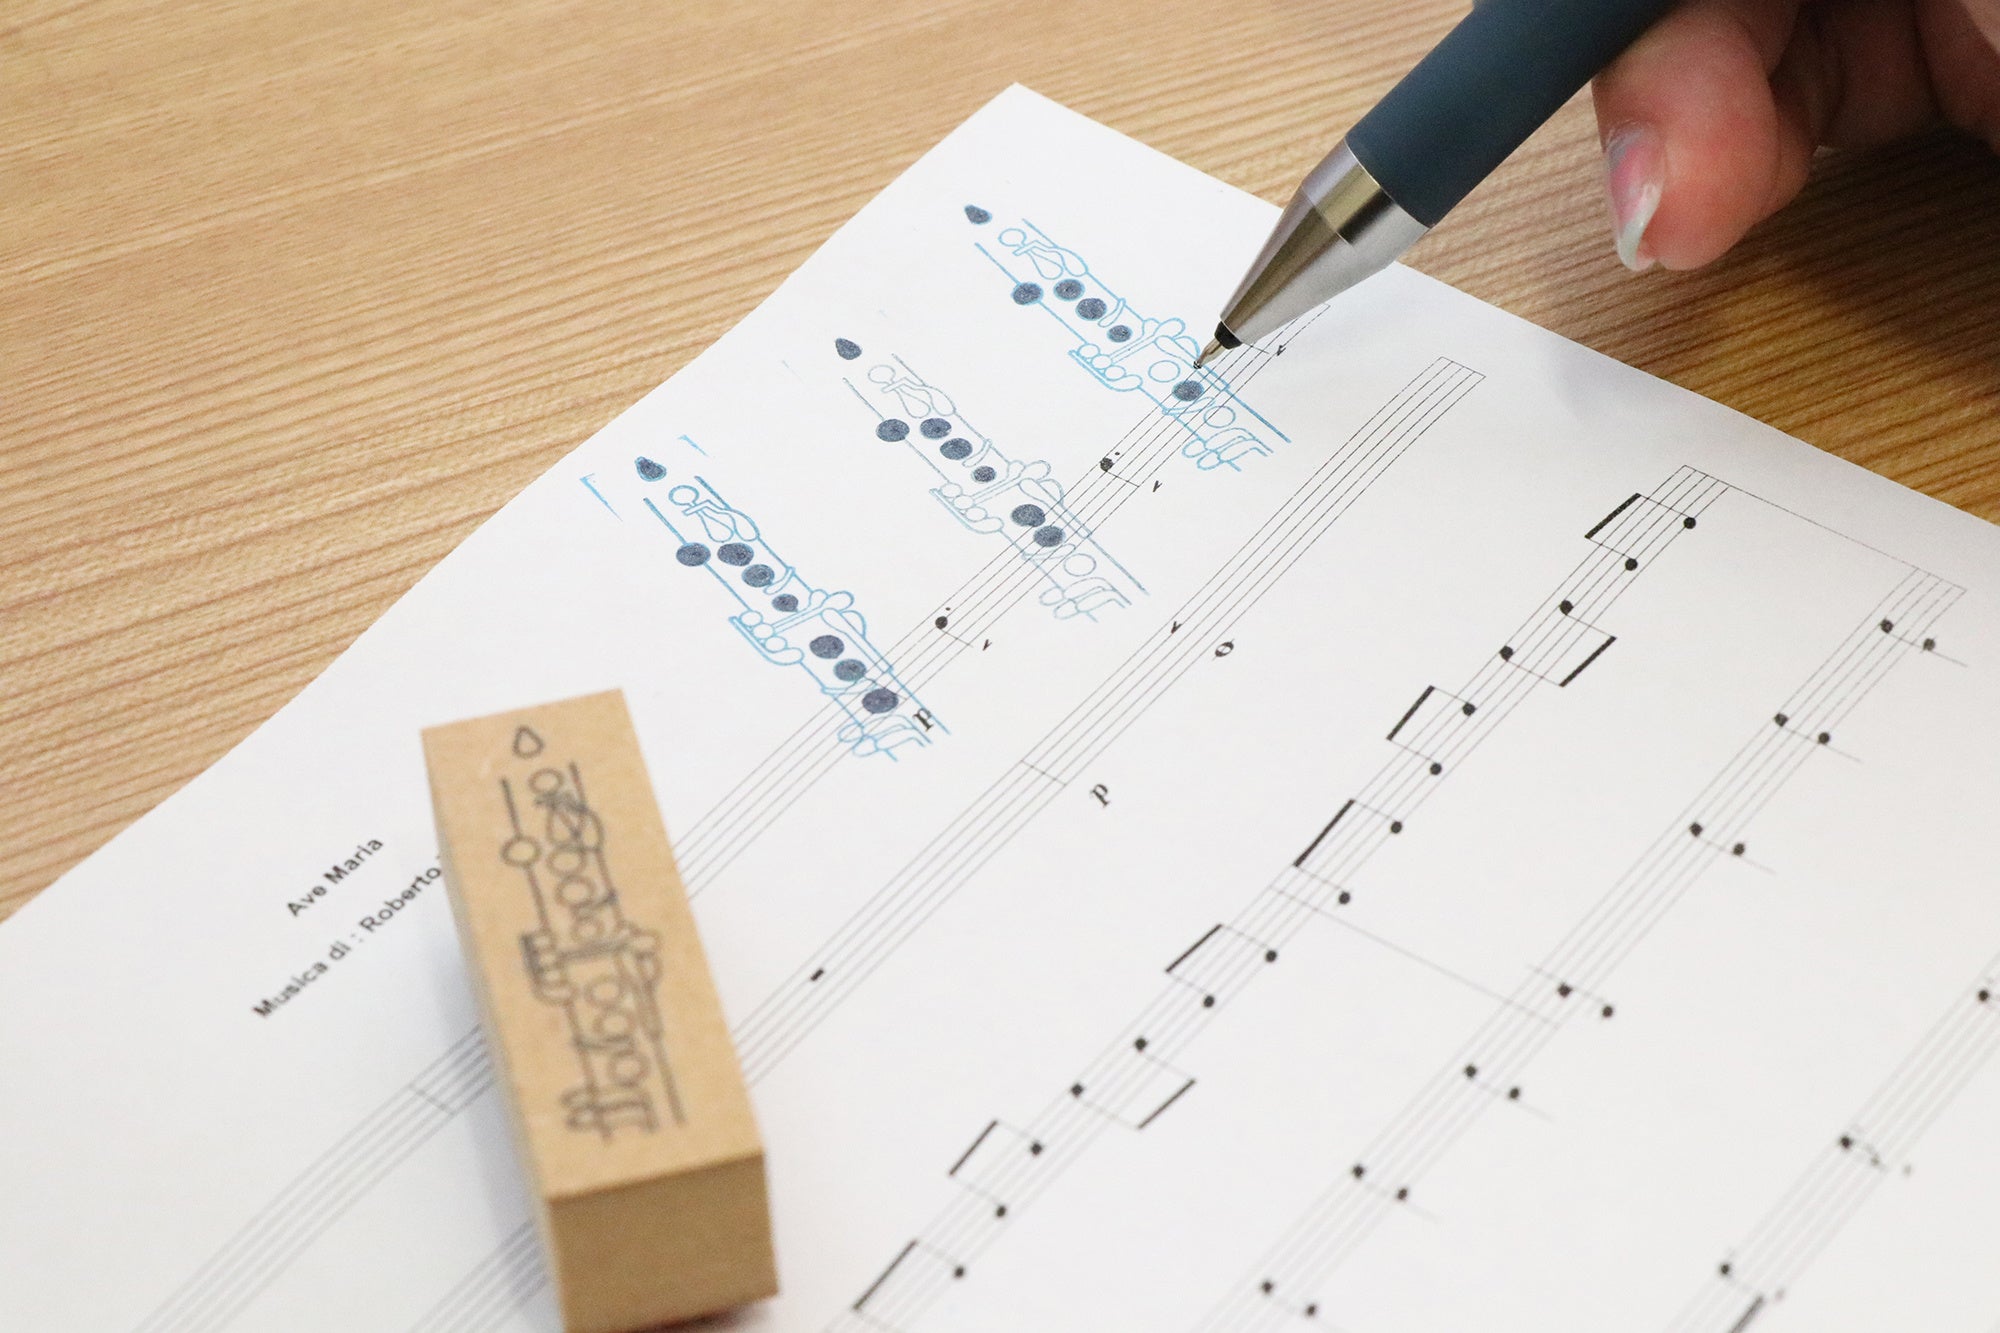 Ave Maria
Musica di : Roberto
p
p